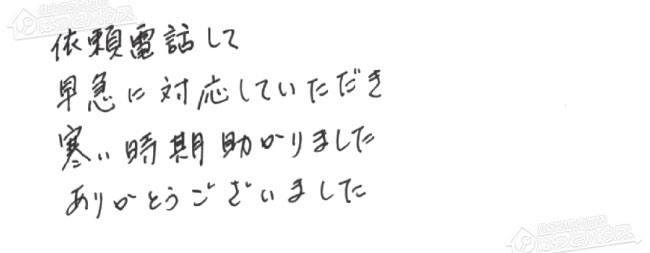 依頼電話して
早急に対応していただき
寒い時期助かりました
ありがとうございました